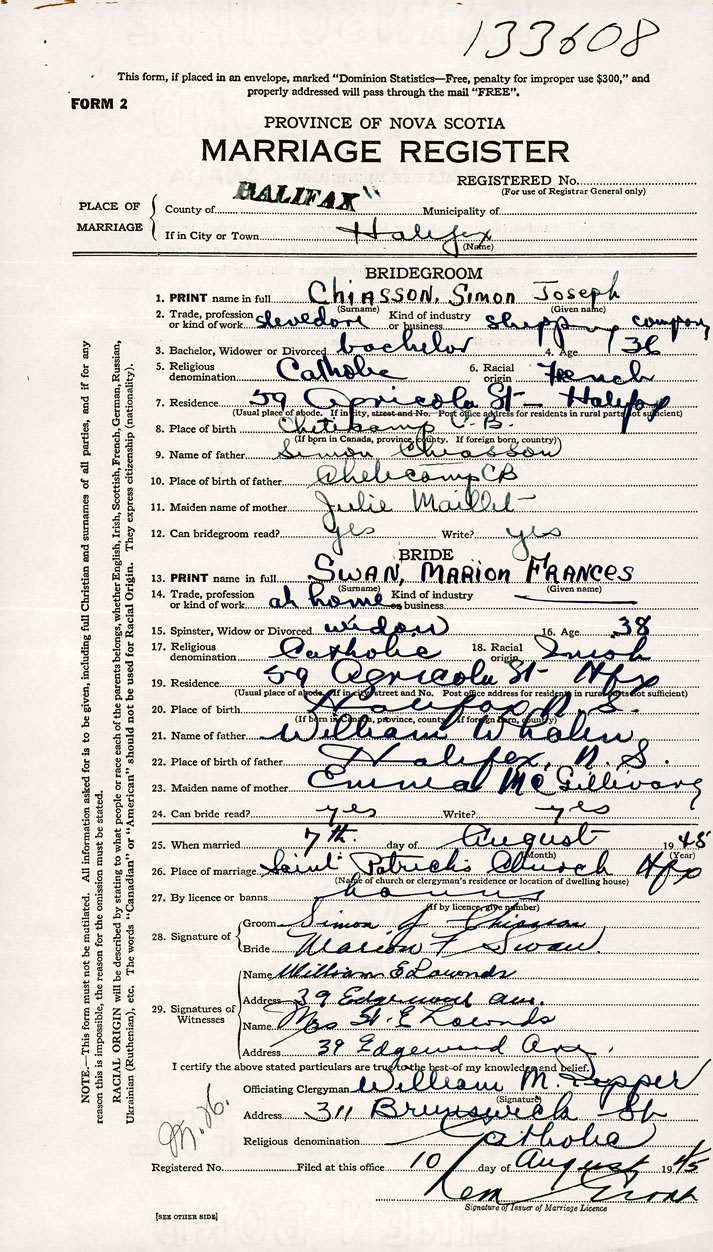 133608
This form, if placed in an envelope, marked "Dominion Statistics—Free, penalty for improper use $300," and
properly addressed will pass through the mail "FREE".
FORM 2
PROVINCE OF NOVA SCOTIA
MARRIAGE REGISTER
REGISTERED No.
(For use of Registrar General only)
PLACE OF MARRIAGE
County of HALIFAX Municipality of
If in City or Town Halifax
(Name)
BRIDEGROOM
1. PRINT name in full CHIASSON, SIMON JOSEPH
(Surname) (Given name)
2. Trade, profession or kind of work stevedore Kind of industry or business shipping company
3. Bachelor, Widower or Divorced bachelor 4. Age 36
5. Religious denomination Catholic 6. Racial origin French
7. Residence 59 Agricola St - Halifax
(Usual place of abode. If in city, street and No. Post office address for residents in rural parts not sufficient)
8. Place of birth Chetikamp C.B.
(If born in Canada, province, county. If foreign born, country)
9. Name of father Simon Chiasson
10. Place of birth of father Chetecamp CB
11. Maiden name of mother Julie Maillet
12. Can bridegroom read? yes Write? yes
BRIDE
13. PRINT name in full SWAN, MARION FRANCES
(Surname) (Given name)
14. Trade, profession or kind of work at home Kind of industry or business
15. Spinster, Widow or Divorced widow 16. Age 38
17. Religious denomination Catholic 18. Racial origin Irish
19. Residence 59 Agricola St - Hfx
(Usual place of abode. If in city street and No. Post office address for residents in rural parts not sufficient)
20. Place of birth Halifax N.S.
(If born in Canada, province, county. If foreign born, country)
21. Name of father William Whalen
22. Place of birth of father Halifax, N.S.
23. Maiden name of mother Emma McGillivary
24. Can bride read? yes Write? yes
25. When married 7th day of August 1945
(Month) (Year)
26. Place of marriage Saint Patrick's Church Hfx
(Name of church or clergyman's residence or location of dwelling house)
27. By licence or banns banns
(If by licence, give number)
28. Signature of
Groom Simon J Chiasson
Bride Marion F Swan
29. Signatures of Witnesses
Name William E Lownds
Address 39 Edgewood Ave.
Name Mrs E Lownds
Address 39 Edgewood Ave.
I certify the above stated particulars are true to the best of my knowledge and belief.
Officiating Clergyman William M. Pepper
(Signature)
Address 311 Brunswick St
Religious denomination Catholic
Registered No. Filed at this office 10 day of August 1945
Signature of Issuer of Marriage Licence
[SEE OTHER SIDE]
NOTE.—This form must not be mutilated. All information asked for is to be given, including full Christian and surnames of all parties, and if for any
reason this is impossible, the reason for the omission must be stated.
RACIAL ORIGIN will be described by stating to what people or race each of the parents belongs, whether English, Irish, Scottish, French, German, Russian,
Ukrainian (Ruthenian), etc. The words "Canadian" or "American" should not be used for Racial Origin. They express citizenship (nationality).